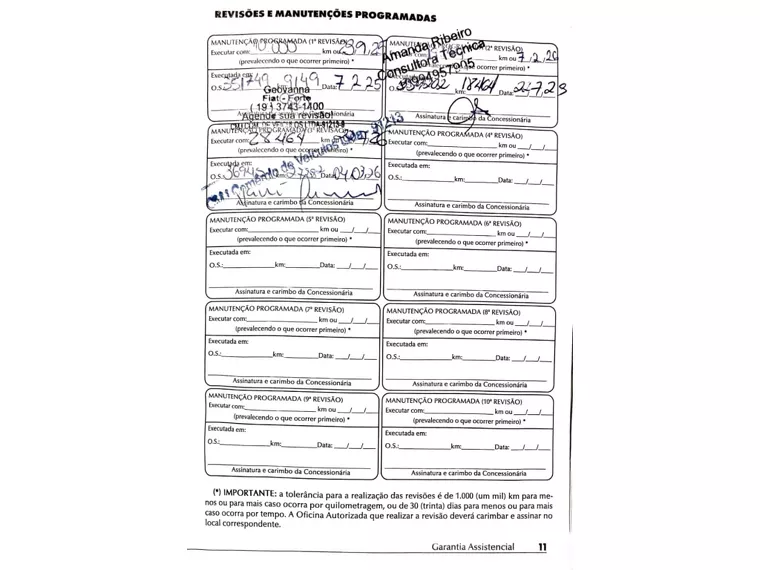 REVISÕES E MANUTENÇÕES PROGRAMADAS
MANUTENÇÃO PROGRAMADA (1ª REVISÃO)
Executar com: 10 000 km ou
(prevalecendo o que ocorrer primeiro) *
Executada em:
O.S.: 351749 9149 Data: 7 2 25
Geovanna
Fiat - Forte
( 19 ) 3743-1400
Agende sua revisão!
(2ª REVISÃO)
km ou 7, 2, 26
Amanda Ribeiro
Consultora Técnica
km: 18464 Data:
Assinatura e carimbo da Concessionária
MANUTENÇÃO PROGRAMADA (3ª REVISÃO)
Executar com: 28.464 km
(prevalecendo o que ocorrer primeiro) *
Executada em:
O.S.: Data: 04.03.26
Comércio de Veículos
Assinatura e carimbo da Concessionária
MANUTENÇÃO PROGRAMADA (4ª REVISÃO)
Executar com: km ou / /
(prevalecendo o que ocorrer primeiro) *
Executada em:
O.S.: km: Data: / /
Assinatura e carimbo da Concessionária
MANUTENÇÃO PROGRAMADA (5ª REVISÃO)
Executar com: km ou / /
(prevalecendo o que ocorrer primeiro) *
Executada em:
O.S.: km: Data: / /
Assinatura e carimbo da Concessionária
MANUTENÇÃO PROGRAMADA (6ª REVISÃO)
Executar com: km ou / /
(prevalecendo o que ocorrer primeiro) *
Executada em:
O.S.: km: Data: / /
Assinatura e carimbo da Concessionária
MANUTENÇÃO PROGRAMADA (7ª REVISÃO)
Executar com: km ou / /
(prevalecendo o que ocorrer primeiro) *
Executada em:
O.S.: km: Data: / /
Assinatura e carimbo da Concessionária
MANUTENÇÃO PROGRAMADA (8ª REVISÃO)
Executar com: km ou / /
(prevalecendo o que ocorrer primeiro) *
Executada em:
O.S.: km: Data: / /
Assinatura e carimbo da Concessionária
MANUTENÇÃO PROGRAMADA (9ª REVISÃO)
Executar com: km ou / /
(prevalecendo o que ocorrer primeiro) *
Executada em:
O.S.: km: Data: / /
Assinatura e carimbo da Concessionária
MANUTENÇÃO PROGRAMADA (10ª REVISÃO)
Executar com: km ou / /
(prevalecendo o que ocorrer primeiro) *
Executada em:
O.S.: km: Data: / /
Assinatura e carimbo da Concessionária
(*) IMPORTANTE: a tolerância para a realização das revisões é de 1.000 (um mil) km para me-
nos ou para mais caso ocorra por quilometragem, ou de 30 (trinta) dias para menos ou para mais
caso ocorra por tempo. A Oficina Autorizada que realizar a revisão deverá carimbar e assinar no
local correspondente.
Garantia Assistencial 11